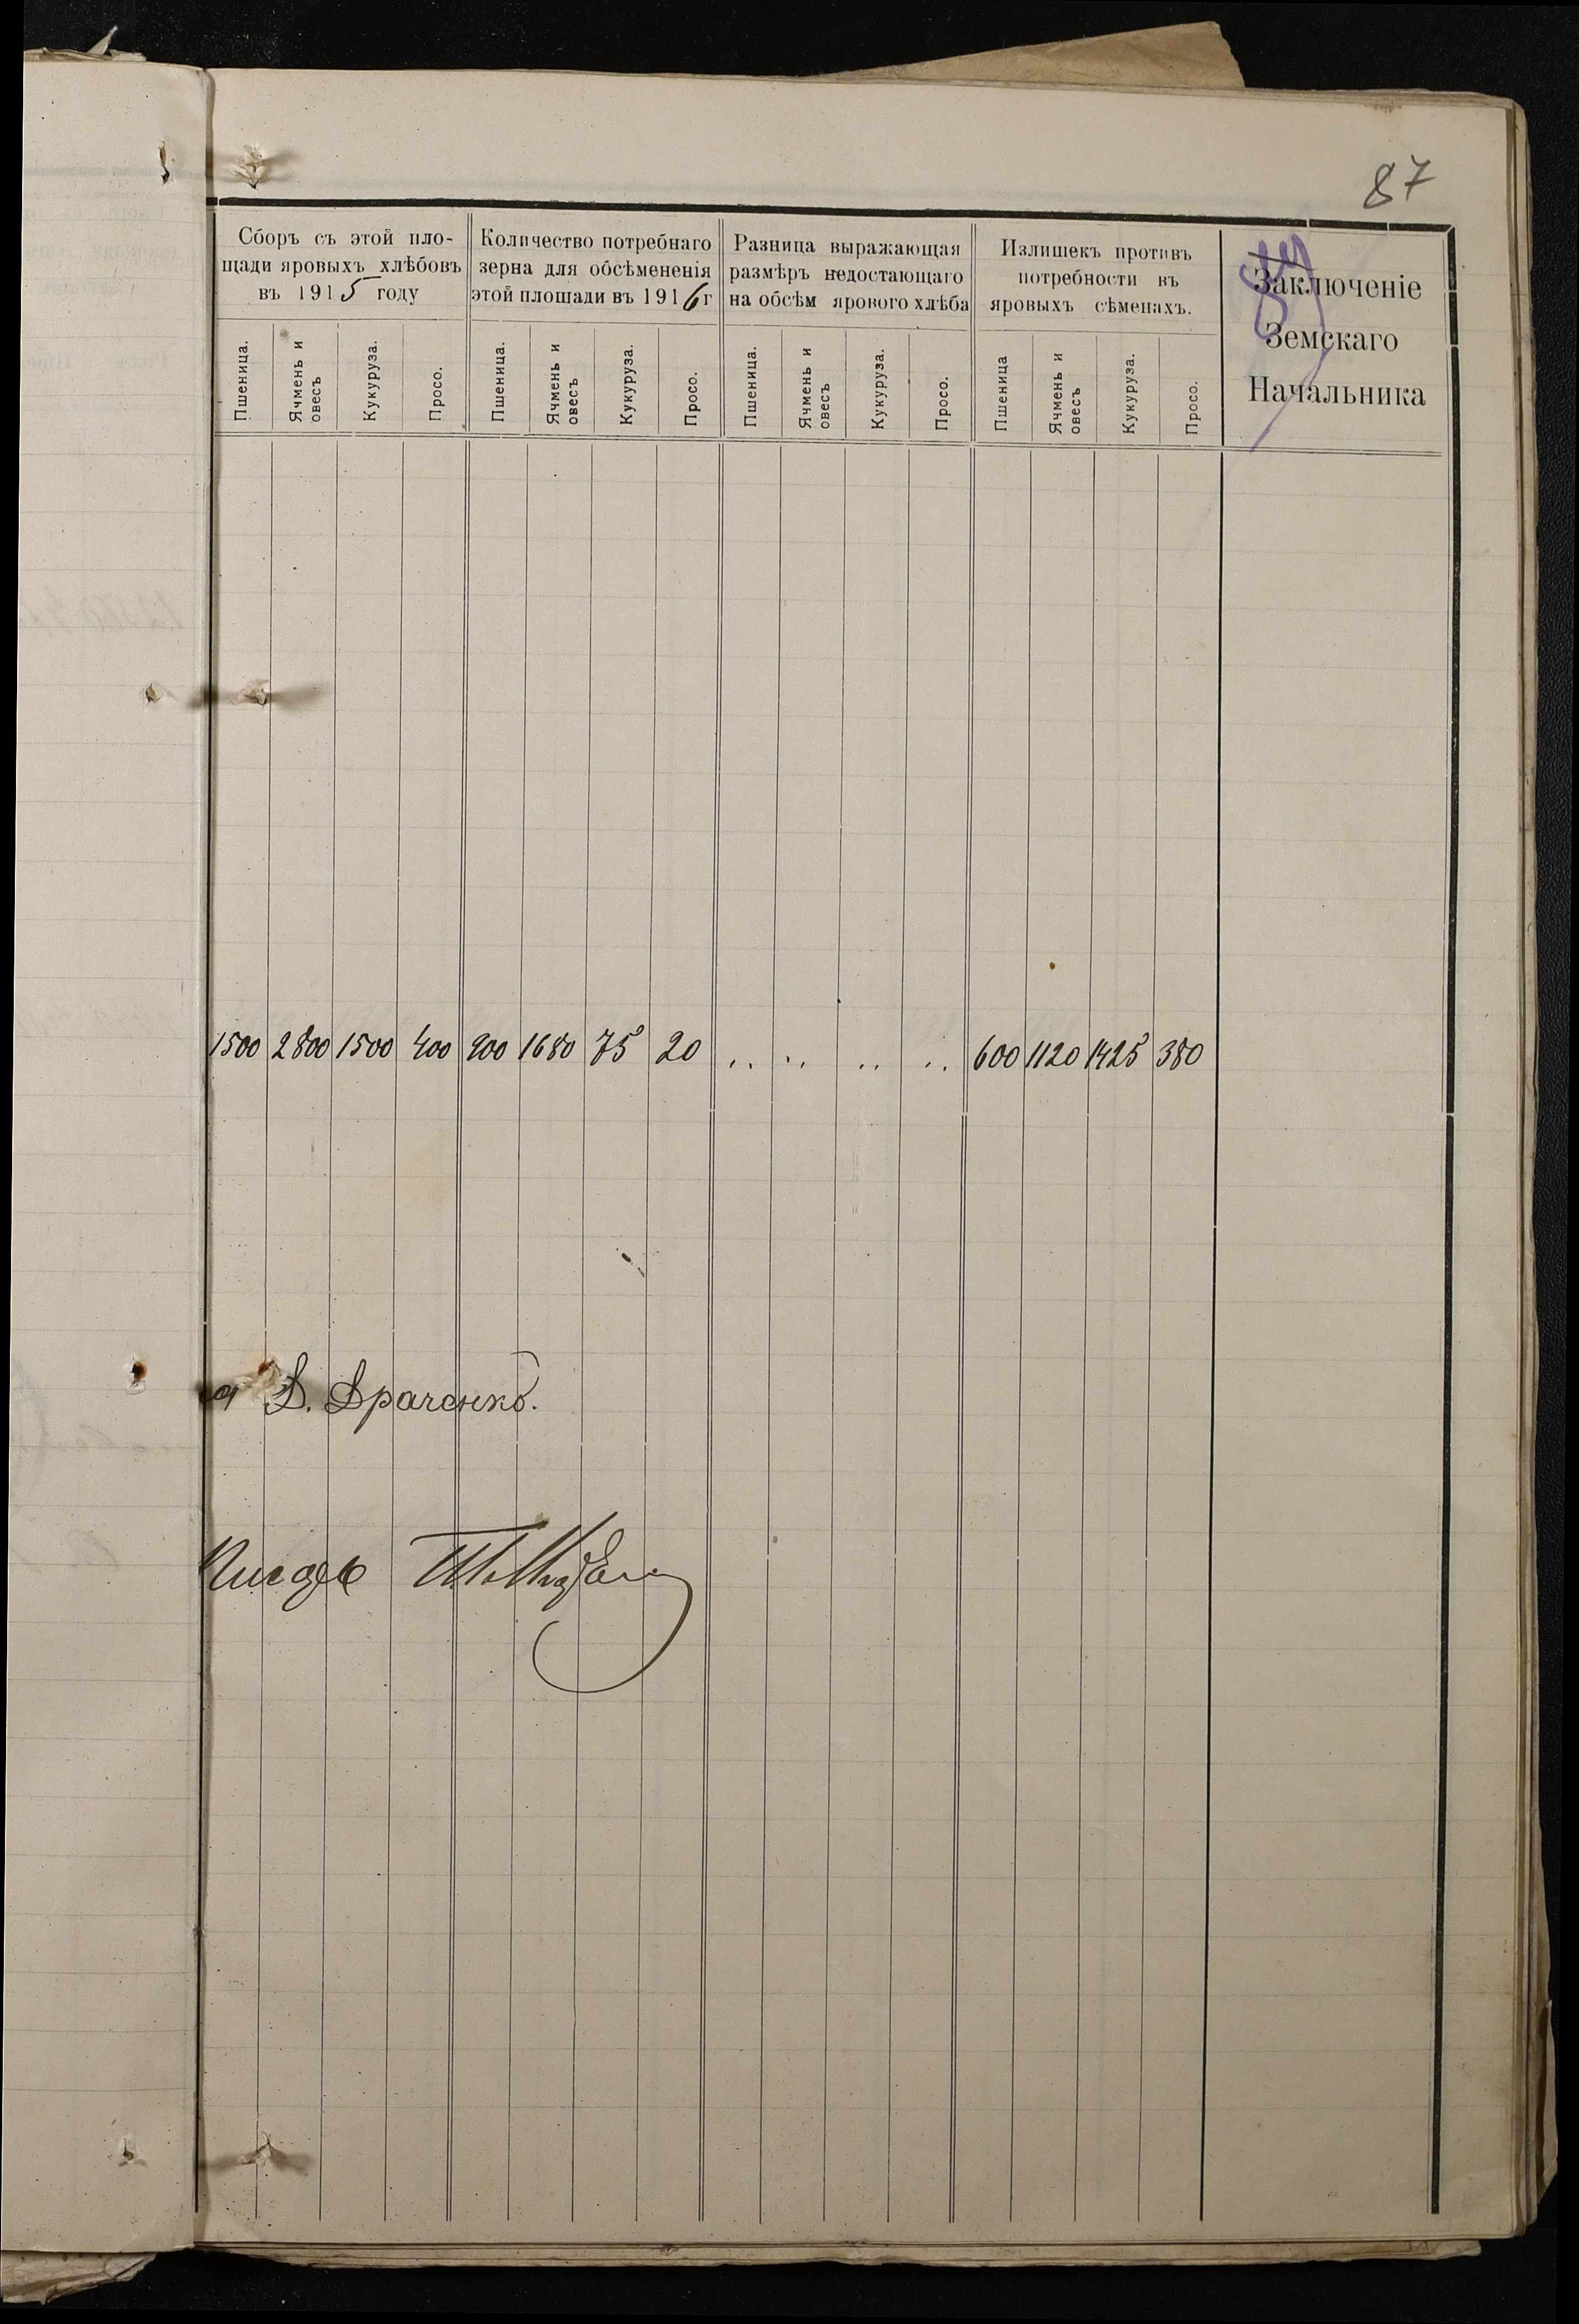 87
Сборъ съ этой пло-
щади яровыхъ хлѣбовъ
въ 1915 году
Количество потребнаго
зерна для обсѣмененія
этой площади въ 1916 г
Разница выражающая
размѣръ недостающаго
на обсѣм ярового хлѣба
Излишекъ противъ
потребности въ
яровыхъ сѣменахъ.
Заключеніе
Земскаго
Начальника
Пшеница.
Ячмень и
овесъ
Кукуруза.
Просо.
Пшеница.
Ячмень и
овесъ
Кукуруза.
Просо.
Пшеница.
Ячмень и
овесъ
Кукуруза.
Просо.
Пшеница
Ячмень и
овесъ
Кукуруза.
Просо.
1500 2800 1500 400 900 1680 75 20 .. .. .. .. 600 1120 1425 380
Д. Драченко.